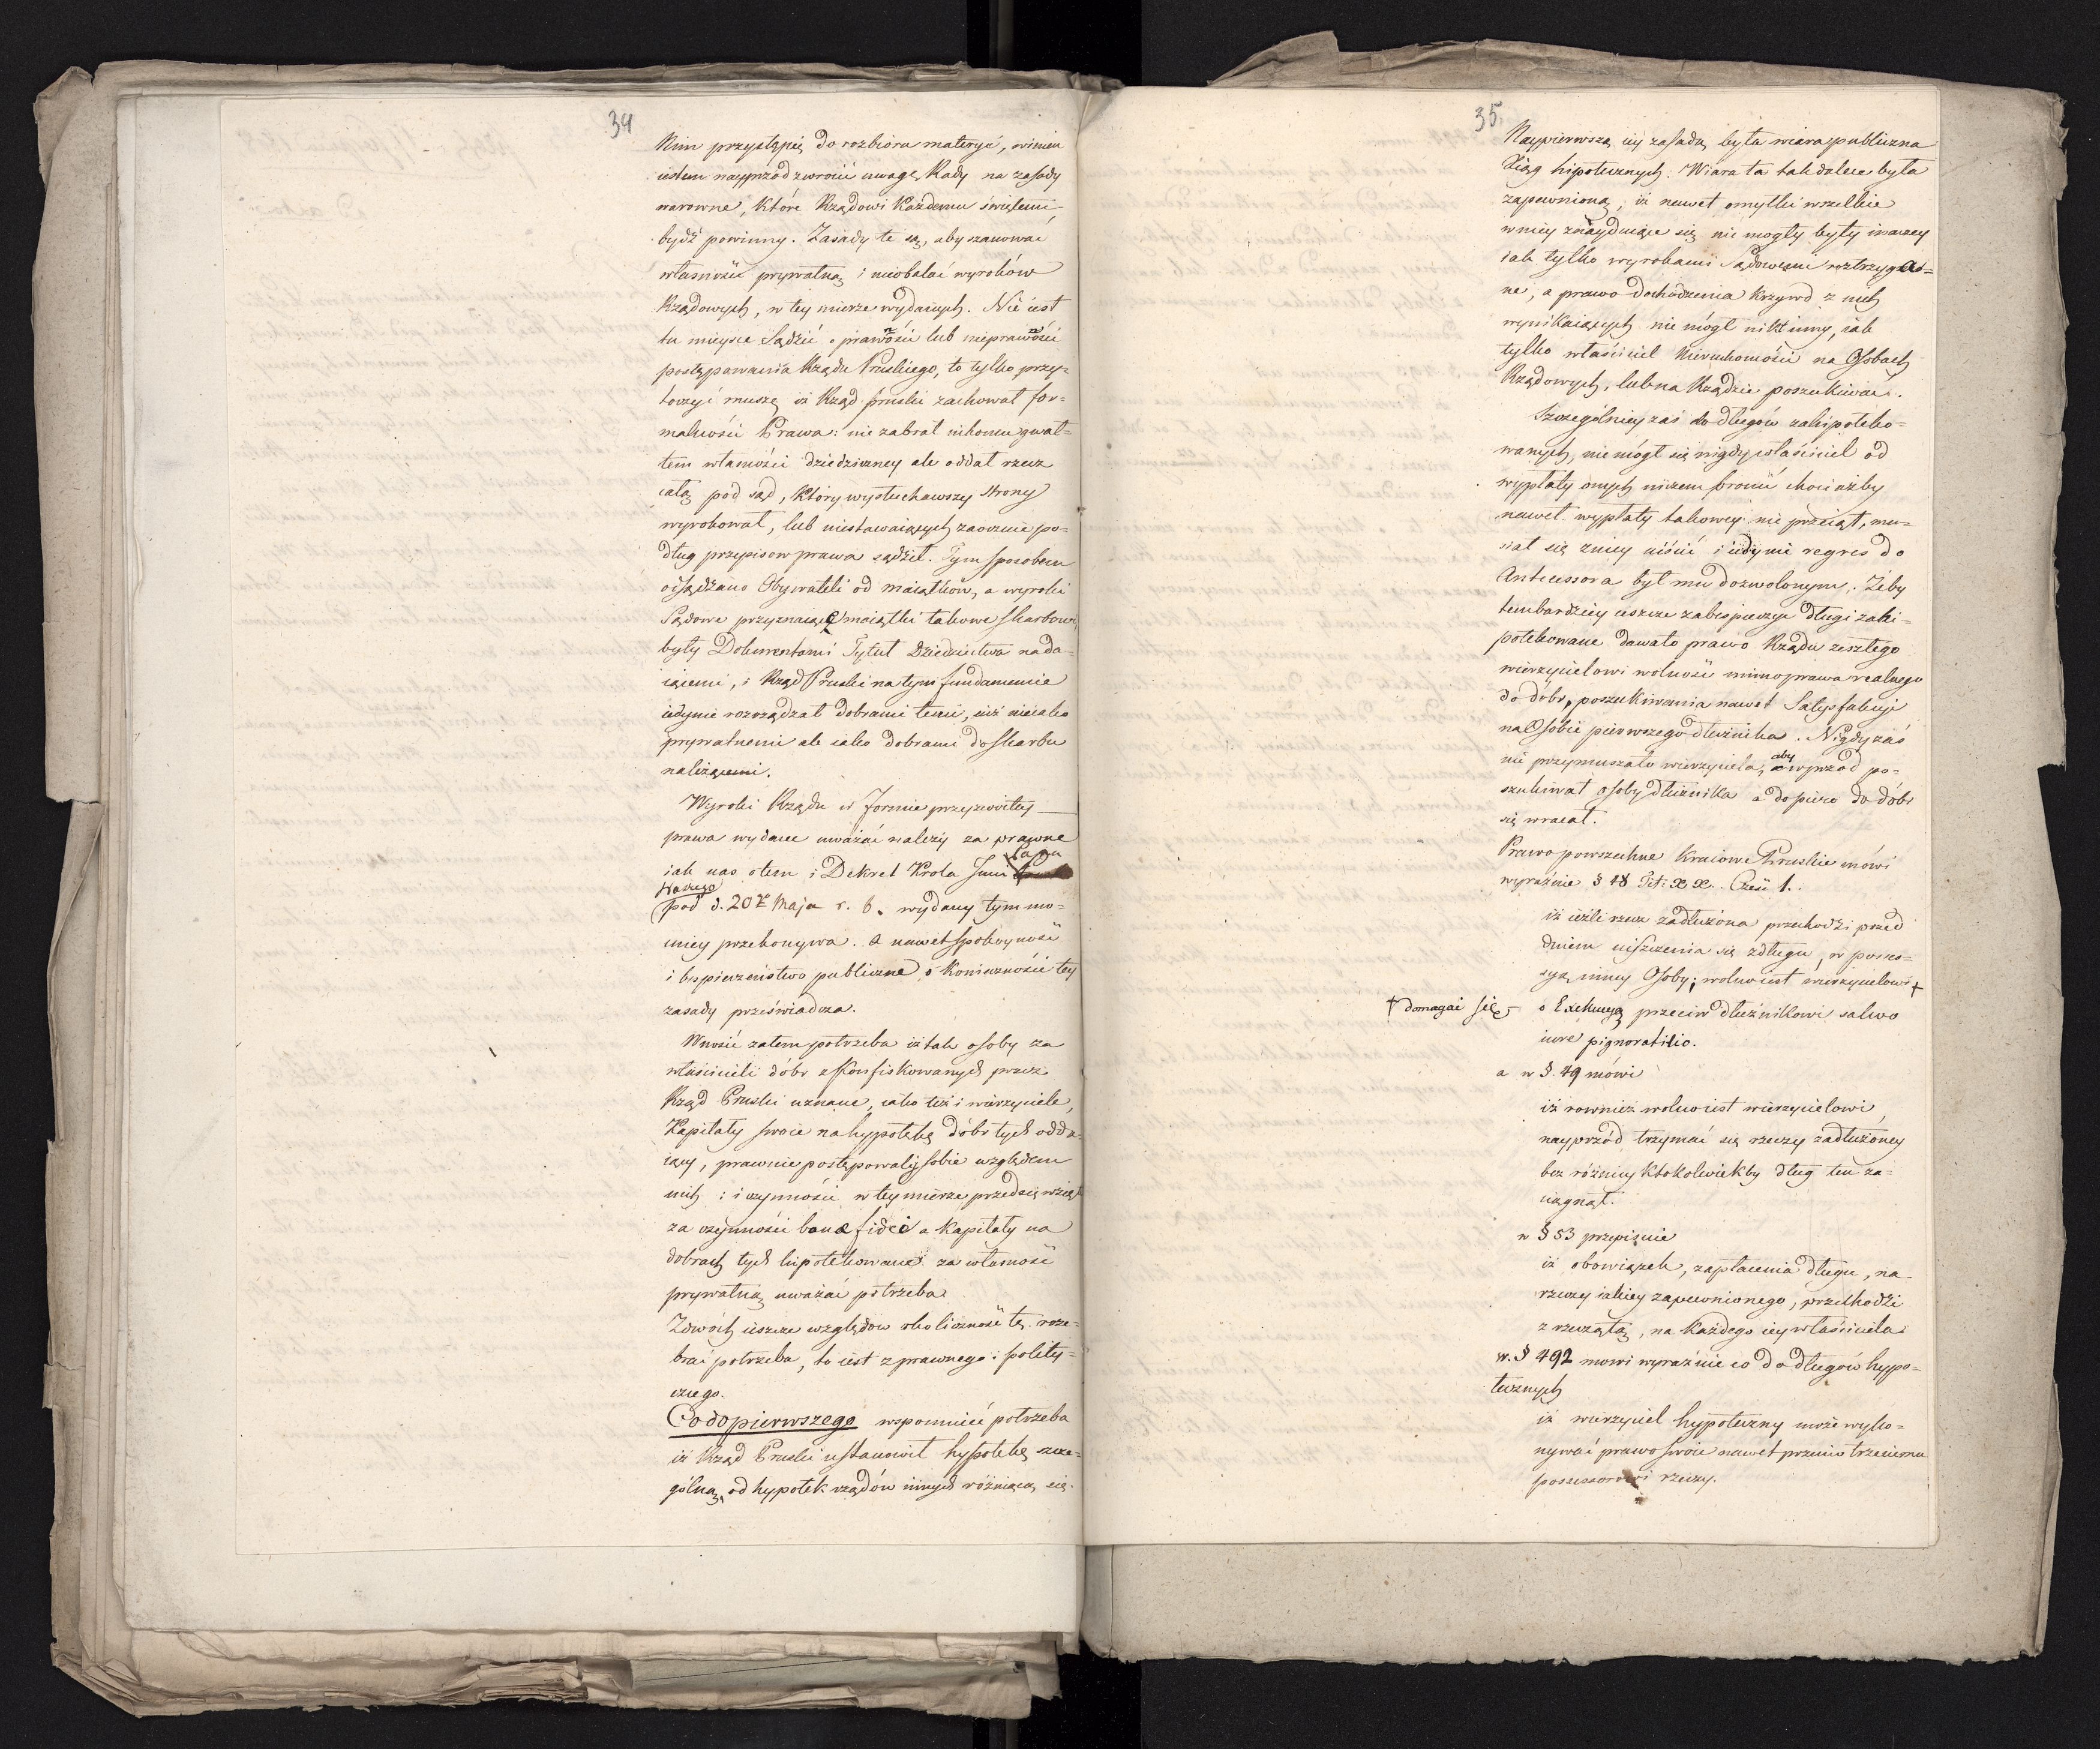 34
Nim przystąpię do rozbioru materyi, winien
iestem nayprzod zwrocić uwagę Rady na zasady
warowne, które Rządowi Każdemu świętemi
bydź powinny. Zasady te są, aby szanować
własność prywatną i nieobalać wyroków
Rządowych, w tey mierze wydanych. Nie iest
tu mieysce Sądzić o prawności lub nieprawności
postępowania Rządu Pruskiego, to tylko przy-
toczyć muszę iż Rząd pruski zachował for-
malności Prawa: nie zabrał nikomu gwał-
tem własności dziedziczney ale oddał rzecz
całą pod sąd, który wysłuchawszy strony
wyrokował, lub niestawaiących zaocznie po-
dług przepisow prawa sądził. Tym sposobem
odsądzano Obywateli od maiątków, a wyroki
Sądowe przyznaiące maiątki takowe skarbowi,
były Dokumentami Tytuł Dziedzictwa nada-
iącemi, i Rząd Pruski na tym fundamencie
iedynie rozrządzał dobrami temi, iuż nieiako
prywatnemi ale iako dobrami do skarbu
należącemi.
Wyroki Rządu w formie przyzwoitey
prawa wydane uważać należy za prawne
iak nas o tem i Dekret Krola Jmci Pana
Naszego
pod d. 20 Maja r. b. wydany tym mo-
cniey przekonywa. A nawet spokoyność
i bespieczeństwo publiczne o Konieczności tey
zasady przeświadcza.
Wnosić zatem potrzeba iż tak osoby za
właścicieli dóbr skonfiskowanych przez
Rząd Pruski uznane, iako też i wierzyciele,
Kapitały swoie na hypotekę dóbr tych odda-
iący, prawnie postępowali sobie względem
nich: i czynności w tey mierze przedsięwzięte
za czynności bonae fidei a Kapitały na
dobrach tych hipotekowane za własność
prywatną uważać potrzeba.
Zdwóch ieszcze względow okoliczność tę roze-
brać potrzeba, to iest z prawnego i polity-
cznego.
Co do pierwszego wspomnieć potrzeba
iż Rząd Pruski ustanowił hypotekę szcze-
gólną, od hypotek rządów innych różniącą się.
35
Naypierwszą iey zasadą była wiara publiczna
Xiąg hipotecznych. Wiara ta tak dalece była
zapewnioną, iż nawet omyłki wszelkie
w niey znayduiące się nie mogły były inaczey
iak tylko wyrokami Sądowemi roztrzygnio-
ne, a prawo dochodzenia Krzywd z nich
wynikaiących nie mógł nikt inny, iak
tylko właściciel Nieruchomości na Osobach
Rządowych, lub na Rządzie poszukiwać.
Szczególniey zaś do długów zahipoteko-
wanych, nie mógł się nigdy właściciel od
wypłaty onych niczem bronić chociażby
nawet wypłaty takowey nie przeiął, mu-
siał się zniey uiścić i iedynie regres do
Antecessora był mu dozwolonym. Żeby
tembardziey ieszcze zabespieczyć długi zahi-
potekowane dawało prawo Rządu zeszłego
wierzycielowi wolność mimo prawa realnego
do dóbr, poszukiwania nawet Satysfakcyi
na Osobie pierwszego dłużnika. Nigdy zaś
nie przymuszało wierzyciela, aby wprzod po-
szukiwał osoby dłużnika a dopiero do dóbr
się wracał.
Prawo powszechne Kraiowe Pruskie mówi
wyraźnie § 48 Tit: XX. Cześć 1.
iż ieżli rzecz zadłużona przechodzi przed
dniem uiszczenia się zdługu, w posses-
syą inney Osoby; wolno iest wierzycielowi +
+ domagać się - o Exekucyą przeciw dłużnikowi salvo
iure pignoratitio.
a w §. 49 mówi
iż rownież wolno iest wierzycielowi,
nayprzód trzymać się rzeczy zadłużoney
bez różnicy Ktokolwiekby dług ten za-
ciągnął.
w § 53 przepisuie
iż obowiązek, zapłacenia długu, na
rzeczy iakiey zapewnionego, przechodzi
z rzeczą tą, na Każdego iey właściciela.
w. § 492 mowi wyraźnie co do długów hypo-
tecznych
iż wierzyciel hypoteczny może wyko-
nywać prawo swoie nawet przeciw trzeciemu
possessorowi rzeczy.